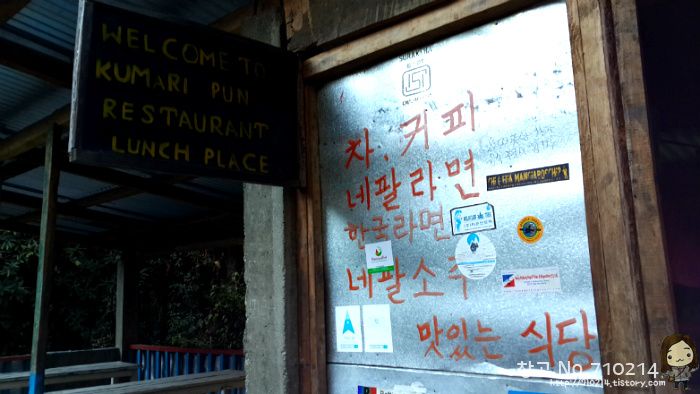 WELCOME TO
KUMARI PUN
RESTAURANT
LUNCH PLACE
차, 커파
네팔라면
한국라면
네팔소주
맛있는 식당
창고 No.710214
http://710214.tistory.com/